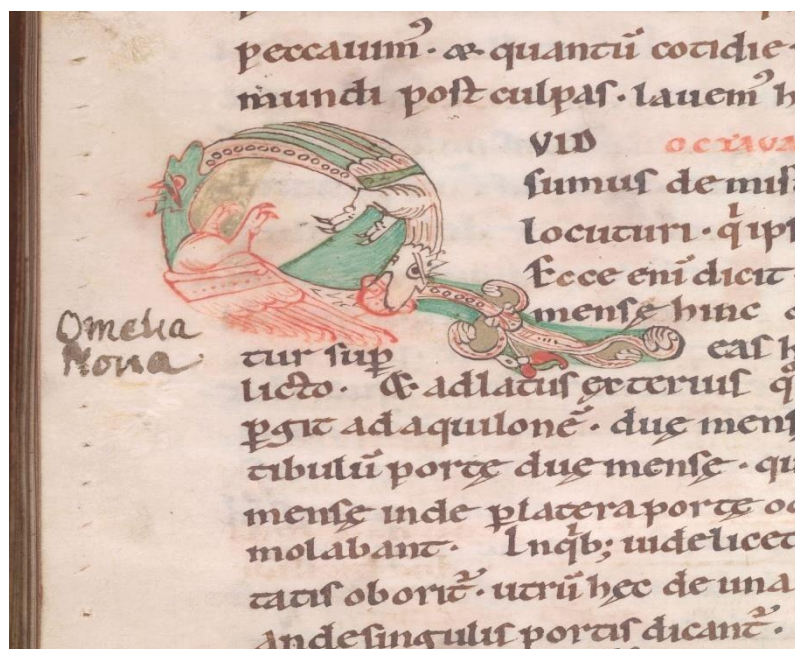 peccauim᾿· & quantū cotidie
mundi post culpas· lauem᾿ h
VID OCTAVA
sumus de mist
locuturi· qͥ ips
Ecce eni dicit
mense hinc
Omelia
Nona
tur sup eas h
licto· & ad latus exterius q
ꝑgit ad aquilonē· duę mens
tibulū portę duę mensę· qu
mensę inde ꝑ latera portę oc
molabant· In qͥb; uidelicet
tatis oborit᾿· utrū hęc de una
an de singulis portis dicant᾿·